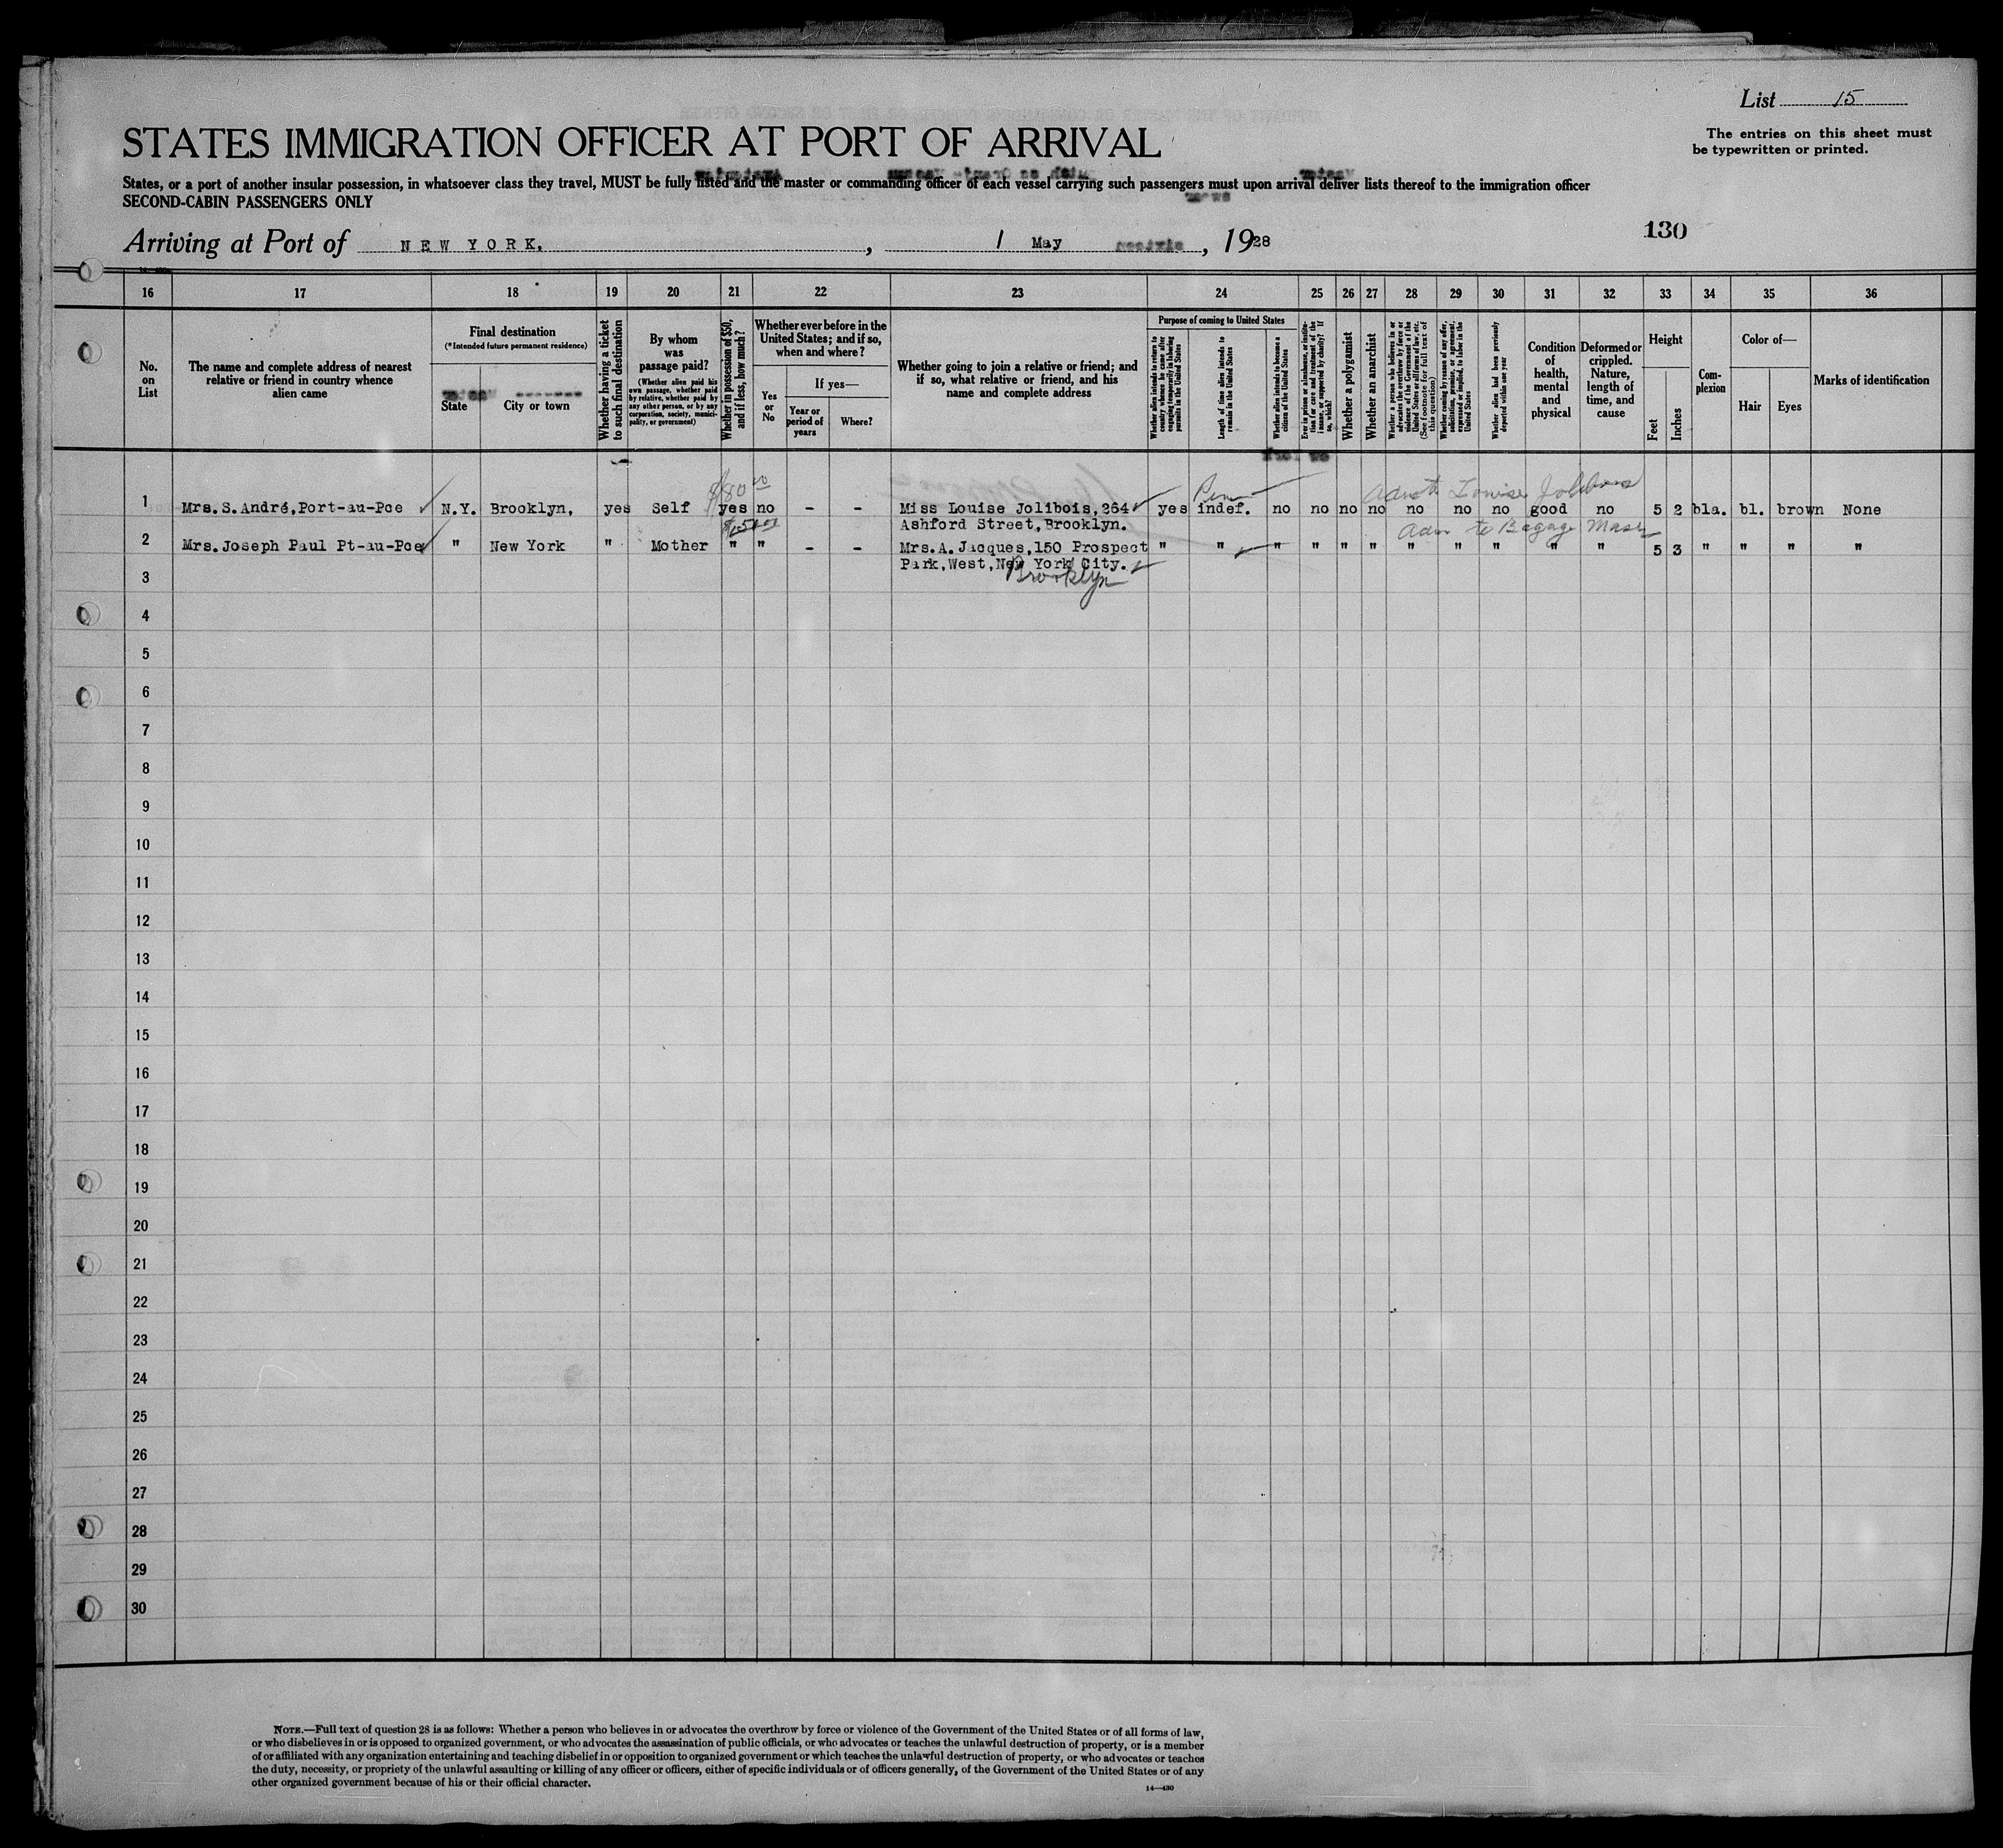 List 15
The entries on this sheet must
be typewritten or printed.
STATES IMMIGRATION OFFICER AT PORT OF ARRIVAL
States, or a port of another insular possession, in whatsoever class they travel, MUST be fully listed and the master or commanding officer of each vessel carrying such passengers must upon arrival deliver lists thereof to the immigration officer
SECOND-CABIN PASSENGERS ONLY
130
Arriving at Port of NEW YORK. , 1 May , 1928
16 17 18 19 20 21 22 23 24 25 26 27 28 29 30 31 32 33 34 35 36
No.
on
List
The name and complete address of nearest
relative or friend in country whence
alien came
Final destination
(*Intended future permanent residence)
State
City or town
Whether having a ticket
to such final destination
By whom
was
passage paid?
(Whether alien paid his
own passage, whether paid
by relative, whether paid by
any other person, or by any
corporation, society, munici-
pality, or government)
Whether in possession of $50,
and if less, how much?
Whether ever before in the
United States; and if so,
when and where?
Yes
or
No
If yes—
Year or
period of
years
Where?
Whether going to join a relative or friend; and
if so, what relative or friend, and his
name and complete address
Purpose of coming to United States
Whether alien intends to return to
country whence he came after
engaging temporarily in laboring
pursuits in the United States
Length of time alien intends to
remain in the United States
Whether alien intends to become a
citizen of the United States
Ever in prison or almshouse, or institu-
tion for care and treatment of the
insane, or supported by charity? If
so, which?
Whether a polygamist
Whether an anarchist
Whether a person who believes in or
advocates the overthrow by force or
violence of the Government of the
United States or all forms of law, etc.
(See footnote for full text of
this question)
Whether coming by reason of any offer,
solicitation, promise, or agreement,
expressed or implied, to labor in the
United States
Whether alien had been previously
deported within one year
Condition
of
health,
mental
and
physical
Deformed or
crippled.
Nature,
length of
time, and
cause
Height
Feet
Inches
Com-
plexion
Color of—
Hair
Eyes
Marks of identification
$80 00
Louise Jolibois
1 Mrs.S.André,Port-au-Pce N.Y. Brooklyn, yes Self yes no - - Miss Louise Jolibois,264 yes indef. no no no no no no no good no 5 2 bla. bl. brown None
Ashford Street,Brooklyn.
2 Mrs.Joseph Paul Pt-au-Pce " New York " Mother " " - - Mrs.A.Jacques,150 Prospect " " " " " " " " " " " 5 3 " " " "
Park,West,New York City.
Brooklyn
3
4
5
6
7
8
9
10
11
12
13
14
15
16
17
18
19
20
21
22
23
24
25
26
27
28
29
30
NOTE.—Full text of question 28 is as follows: Whether a person who believes in or advocates the overthrow by force or violence of the Government of the United States or of all forms of law,
or who disbelieves in or is opposed to organized government, or who advocates the assassination of public officials, or who advocates or teaches the unlawful destruction of property, or is a member
of or affiliated with any organization entertaining and teaching disbelief in or opposition to organized government or which teaches the unlawful destruction of property, or who advocates or teaches
the duty, necessity, or propriety of the unlawful assaulting or killing of any officer or officers, either of specific individuals or of officers generally, of the Government of the United States or of any
other organized government because of his or their official character.
14—430